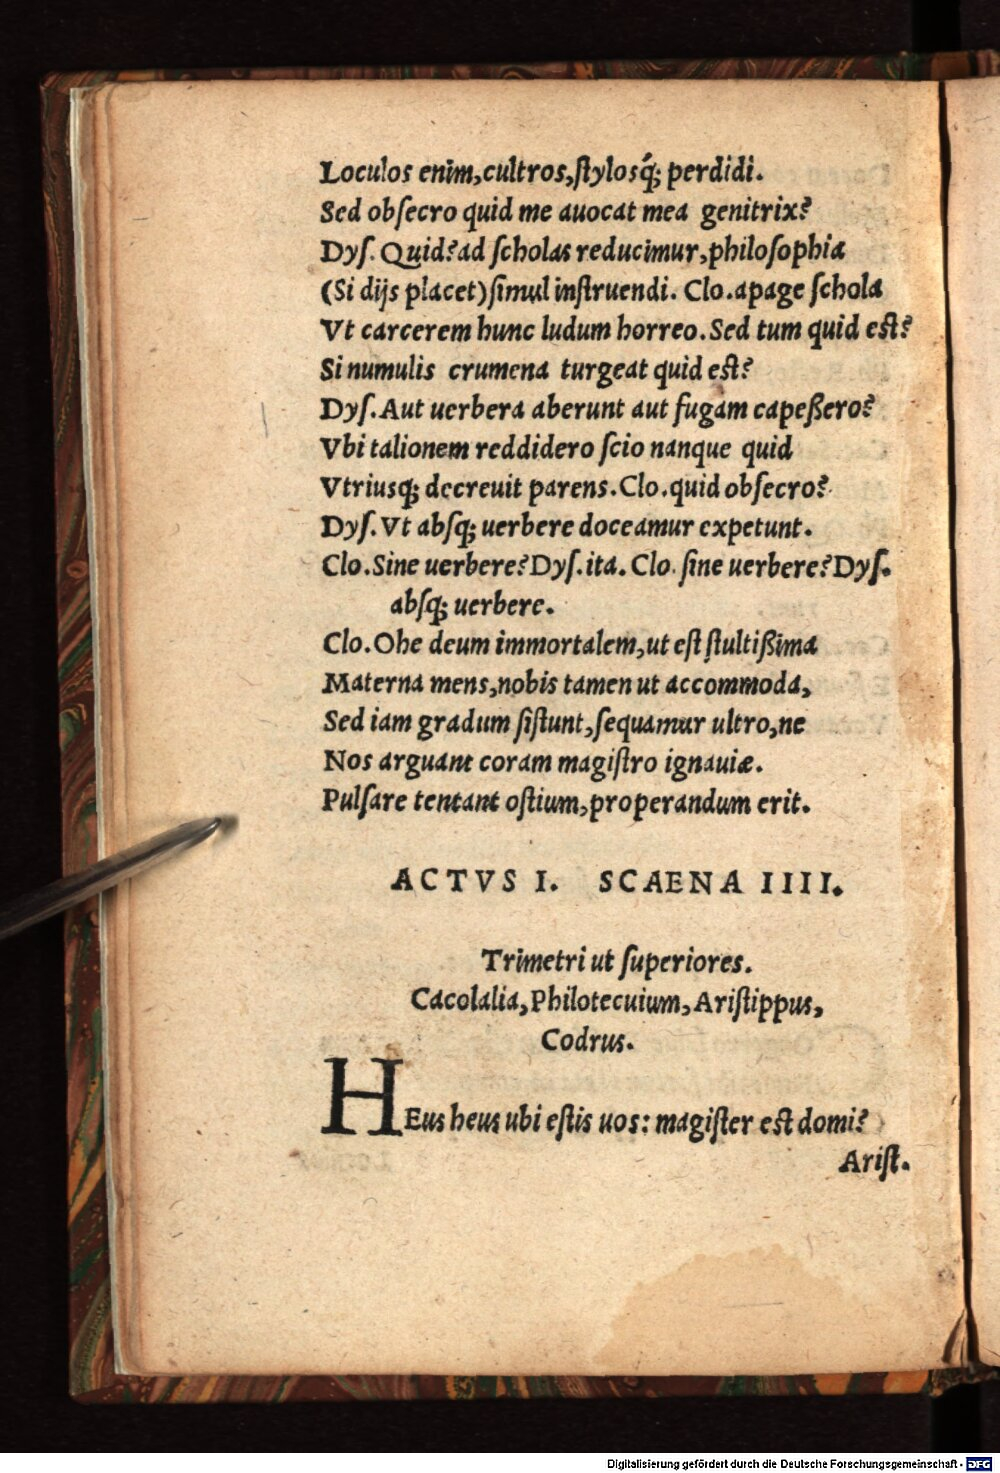 Loculos enim,cultros,ſtylosq́; perdidi.
Sed obſecro quid me auocat mea genitrix?
Dyſ. Quid?ad ſcholas reducimur,philoſophia
(Si dijs placet)ſimul inſtruendi. Clo.apage ſchola
Vt carcerem hunc ludum horreo.Sed tum quid eſt?
Si numulis crumena turgeat quid eſt?
Dyſ.Aut uerbera aberunt aut fugam capeßero?
Vbi talionem reddidero ſcio nanque quid
Vtriusq; decreuit parens.Clo.quid obſecro?
Dyſ.Vt abſq; uerbere doceamur expetunt.
Clo.Sine uerbere?Dyſ.ita. Clo. ſine uerbere?Dyſ.
abſq; uerbere.
Clo.Ohe deum immortalem,ut eſt ſtultißima
Materna mens,nobis tamen ut accommoda,
Sed iam gradum ſiſtunt,ſequamur ultro,ne
Nos arguant coram magiſtro ignauiæ.
Pulſare tentant oſtium,properandum erit.
ACTVS I. SCAENA IIII.
Trimetri ut ſuperiores.
Cacolalia,Philotecnium,Ariſtippus,
Codrus.
HEus heus ubi eſtis uos: magiſter eſt domi?
Ariſt.
Digitalisierung gefördert durch die Deutsche Forschungsgemeinschaft - DFG